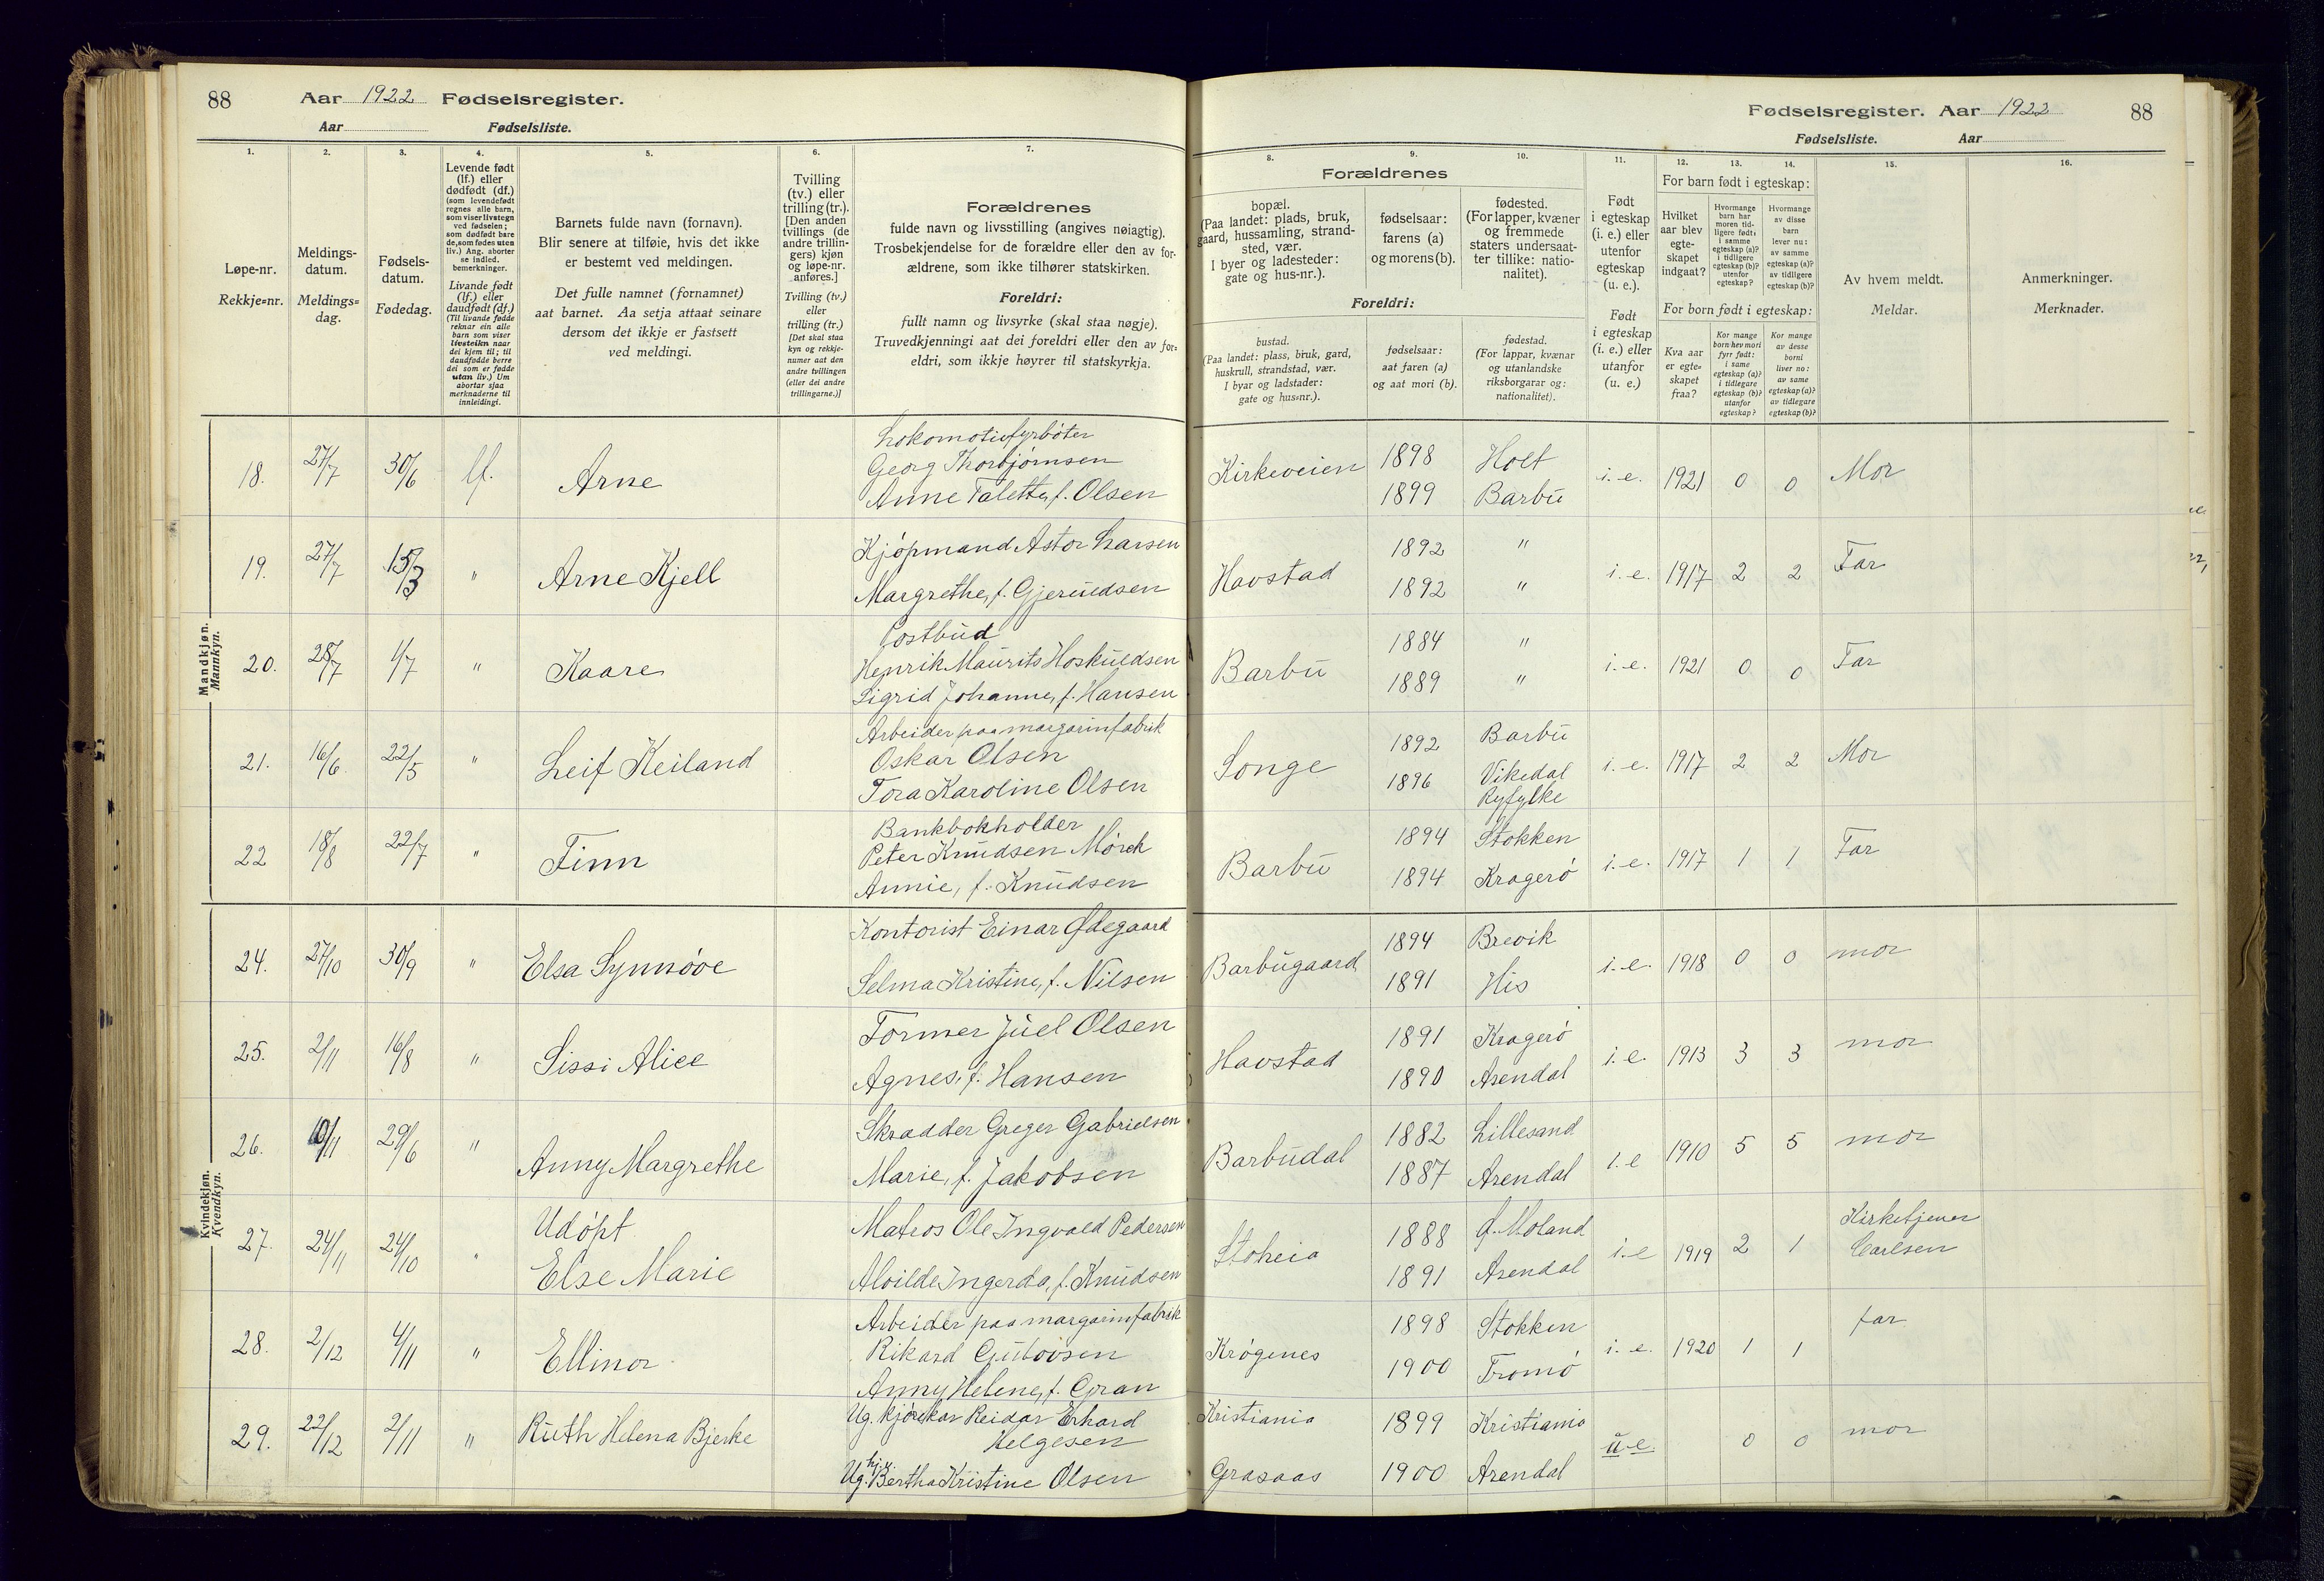 88 Aar 1922 Fødselsregister.
Aar Fødselsliste.
Fødselsregister. Aar 1922 88
Fødselsliste. Aar
1.
Løpe-nr.
Rekkje-nr.
2.
Meldings-
datum.
Meldings-
dag.
3.
Fødsels-
datum.
Fødedag.
4.
Levende født
(lf.) eller
dødfødt (df.)
(som levendefødt
regnes alle barn,
som viser livstegn
ved fødselen;
som dødfødt bare
de, som fødes uten
liv.) Ang. aborter
se indled.
bemerkninger.
Livande født
(lf.) eller
daudfødt (df.)
(Til livande fødde
reknar ein alle
barn som viser
livsteikn naar
dei kjem til; til
daudfødde berre
dei som er fødde
utan liv.) Um
abortar sjaa
merknaderne til
innleidingi.
5.
Barnets fulde navn (fornavn).
Blir senere at tilføie, hvis det ikke
er bestemt ved meldingen.
Det fulle namnet (fornamnet)
aat barnet. Aa setja attaat seinare
dersom det ikkje er fastsett
ved meldingi.
6.
Tvilling
(tv.) eller
trilling (tr.).
[Den anden
tvillings (de
andre trillin-
gers) kjøn
og løpe-nr.
anføres.]
Tvilling (tv.)
eller
trilling (tr.)
[Det skal staa
kyn og rekkje-
numer aat den
andre tvillingen
(eller dei andre
trillingarne.)]
7.
Forældrenes
fulde navn og livsstilling (angives nøiagtig).
Trosbekjendelse for de forældre eller den av for-
ældrene, som ikke tilhører statskirken.
Foreldri:
fullt namn og livsyrke (skal staa nøgje).
Truvedkjenningi aat dei foreldri eller den av for-
eldri, som ikkje høyrer til statskyrkja.
Forældrenes
8.
bopæl.
(Paa landet: plads, bruk,
gaard, hussamling, strand-
sted, vær.
I byer og ladesteder:
gate og hus-nr.).
9.
fødselsaar:
farens (a)
og morens (b).
10.
fødested.
(For lapper, kvæner
og fremmede
staters undersaat-
ter tillike: natio-
nalitet).
Foreldri:
bustad.
(Paa landet: plass, bruk, gard,
huskrull, strandstad, vær.
I byar og ladstader:
gate og hus-nr.).
fødselsaar:
aat faren (a)
og aat mori (b).
fødestad.
(For lappar, kvænar
og utanlandske
riksborgarar og:
nationalitet).
11.
Født
i egteskap
(i. e.) eller
utenfor
egteskap
(u. e.).
Født
i egteskap
(i. e.) eller
utanfor
(u. e.)
12. 13. 14.
For barn født i egteskap:
Hvilket
aar blev
egte-
skapet
indgaat?
Hvormange
barn har
moren tid-
ligere født:
i samme
egteskap (a)?
i tidligere
egteskap (b)?
utenfor
egteskap?
Hvormange
av disse
barn
lever nu:
av samme
egteskap (a)?
av tidligere
egteskap (b)?
For born født i egteskap:
Kva aar
er egte-
skapet
fraa?
Kor mange
born hev mori
fyrr født:
i same
egteskap (a)?
i tidlegare
egteskap (b)?
utanfor
egteskap?
Kor mange
av desse
borni
liver no:
av same
egteskap (a)?
av tidlegare
egteskap (b)?
15.
Av hvem meldt.
Meldar.
16.
Anmerkninger.
Merknader.
Mandkjøn.
Mannkyn.
18. 27/7 30/6 lf. Arne
Lokomotivfyrbøter
Georg Thorbjørnsen
Anne Taletta, f. Olsen
Kirkeveien 1898 Holt i. e. 1921 0 0 Mor
1899 Barbu
19. 27/7 15/3 " Arne Kjell
Kjøpmand Astor Larsen
Margrethe, f. Gjeruldsen
Havstad 1892 " i. e. 1917 2 2 Far
1892 "
20. 28/7 1/7 " Kaare
Postbud
Henrik Maurits Hoskuldsen
Sigrid Johanne, f. Hansen
Barbu 1884 " i. e. 1921 0 0 Far
1889 "
21. 16/6 22/5 " Leif Keiland
Arbeider paa margarinfabrik
Oskar Olsen
Tora Karoline Olsen
Songe 1892 Barbu i. e. 1917 2 2 Mor
1896 Vikedal
Ryfylke
22 18/8 22/7 " Finn
Bankbokholder
Peter Knudsen Mørch
Annie, f. Knudsen
Barbu 1894 Stokken i. e. 1917 1 1 Far
1894 Kragerø
Kvindekjøn.
Kvendkyn.
24. 27/10 30/9 " Elsa Synnøve
Kontorist Einar Ødegaard
Selma Kristine, f. Nilsen
Barbugaard 1894 Brevik i. e. 1918 0 0 mor
1891 His
25. 2/11 16/8 " Sissi Alice
Former Juel Olsen
Agnes, f. Hansen
Havstad 1891 Kragerø i. e. 1913 3 3 mor
1890 Arendal
26. 10/11 29/6 " Anny Margrethe
Skrædder Greger Gabrielsen
Marie, f. Jakobsen
Barbudal 1882 Lillesand i. e 1910 5 5 mor
1887 Arendal
27. 24/11 24/10 " Udøpt
Else Marie
Matros Ole Ingvald Pedersen
Alvilde Ingerda, f. Knudsen
Stoheia 1888 Ø. Moland i. e 1919 2 1 Kirketjener
Carlsen
1891 Arendal
28. 2/12 4/11 " Ellinor
Arbeider paa margarinfabrik
Rikard Gulovsen
Anny Helene, f. Gran
Krøgenes 1898 Stokken i. e. 1920 1 1 far
1900 Tromø
29. 22/12 2/11 " Ruth Helena Bjerke
Ug. kjørekar Reidar Erhard
Helgesen
Ug. hj.v. Bertha Kristine Olsen
Kristiania 1899 Kristiania u. e. 0 0 mor
Grasaas 1900 Arendal